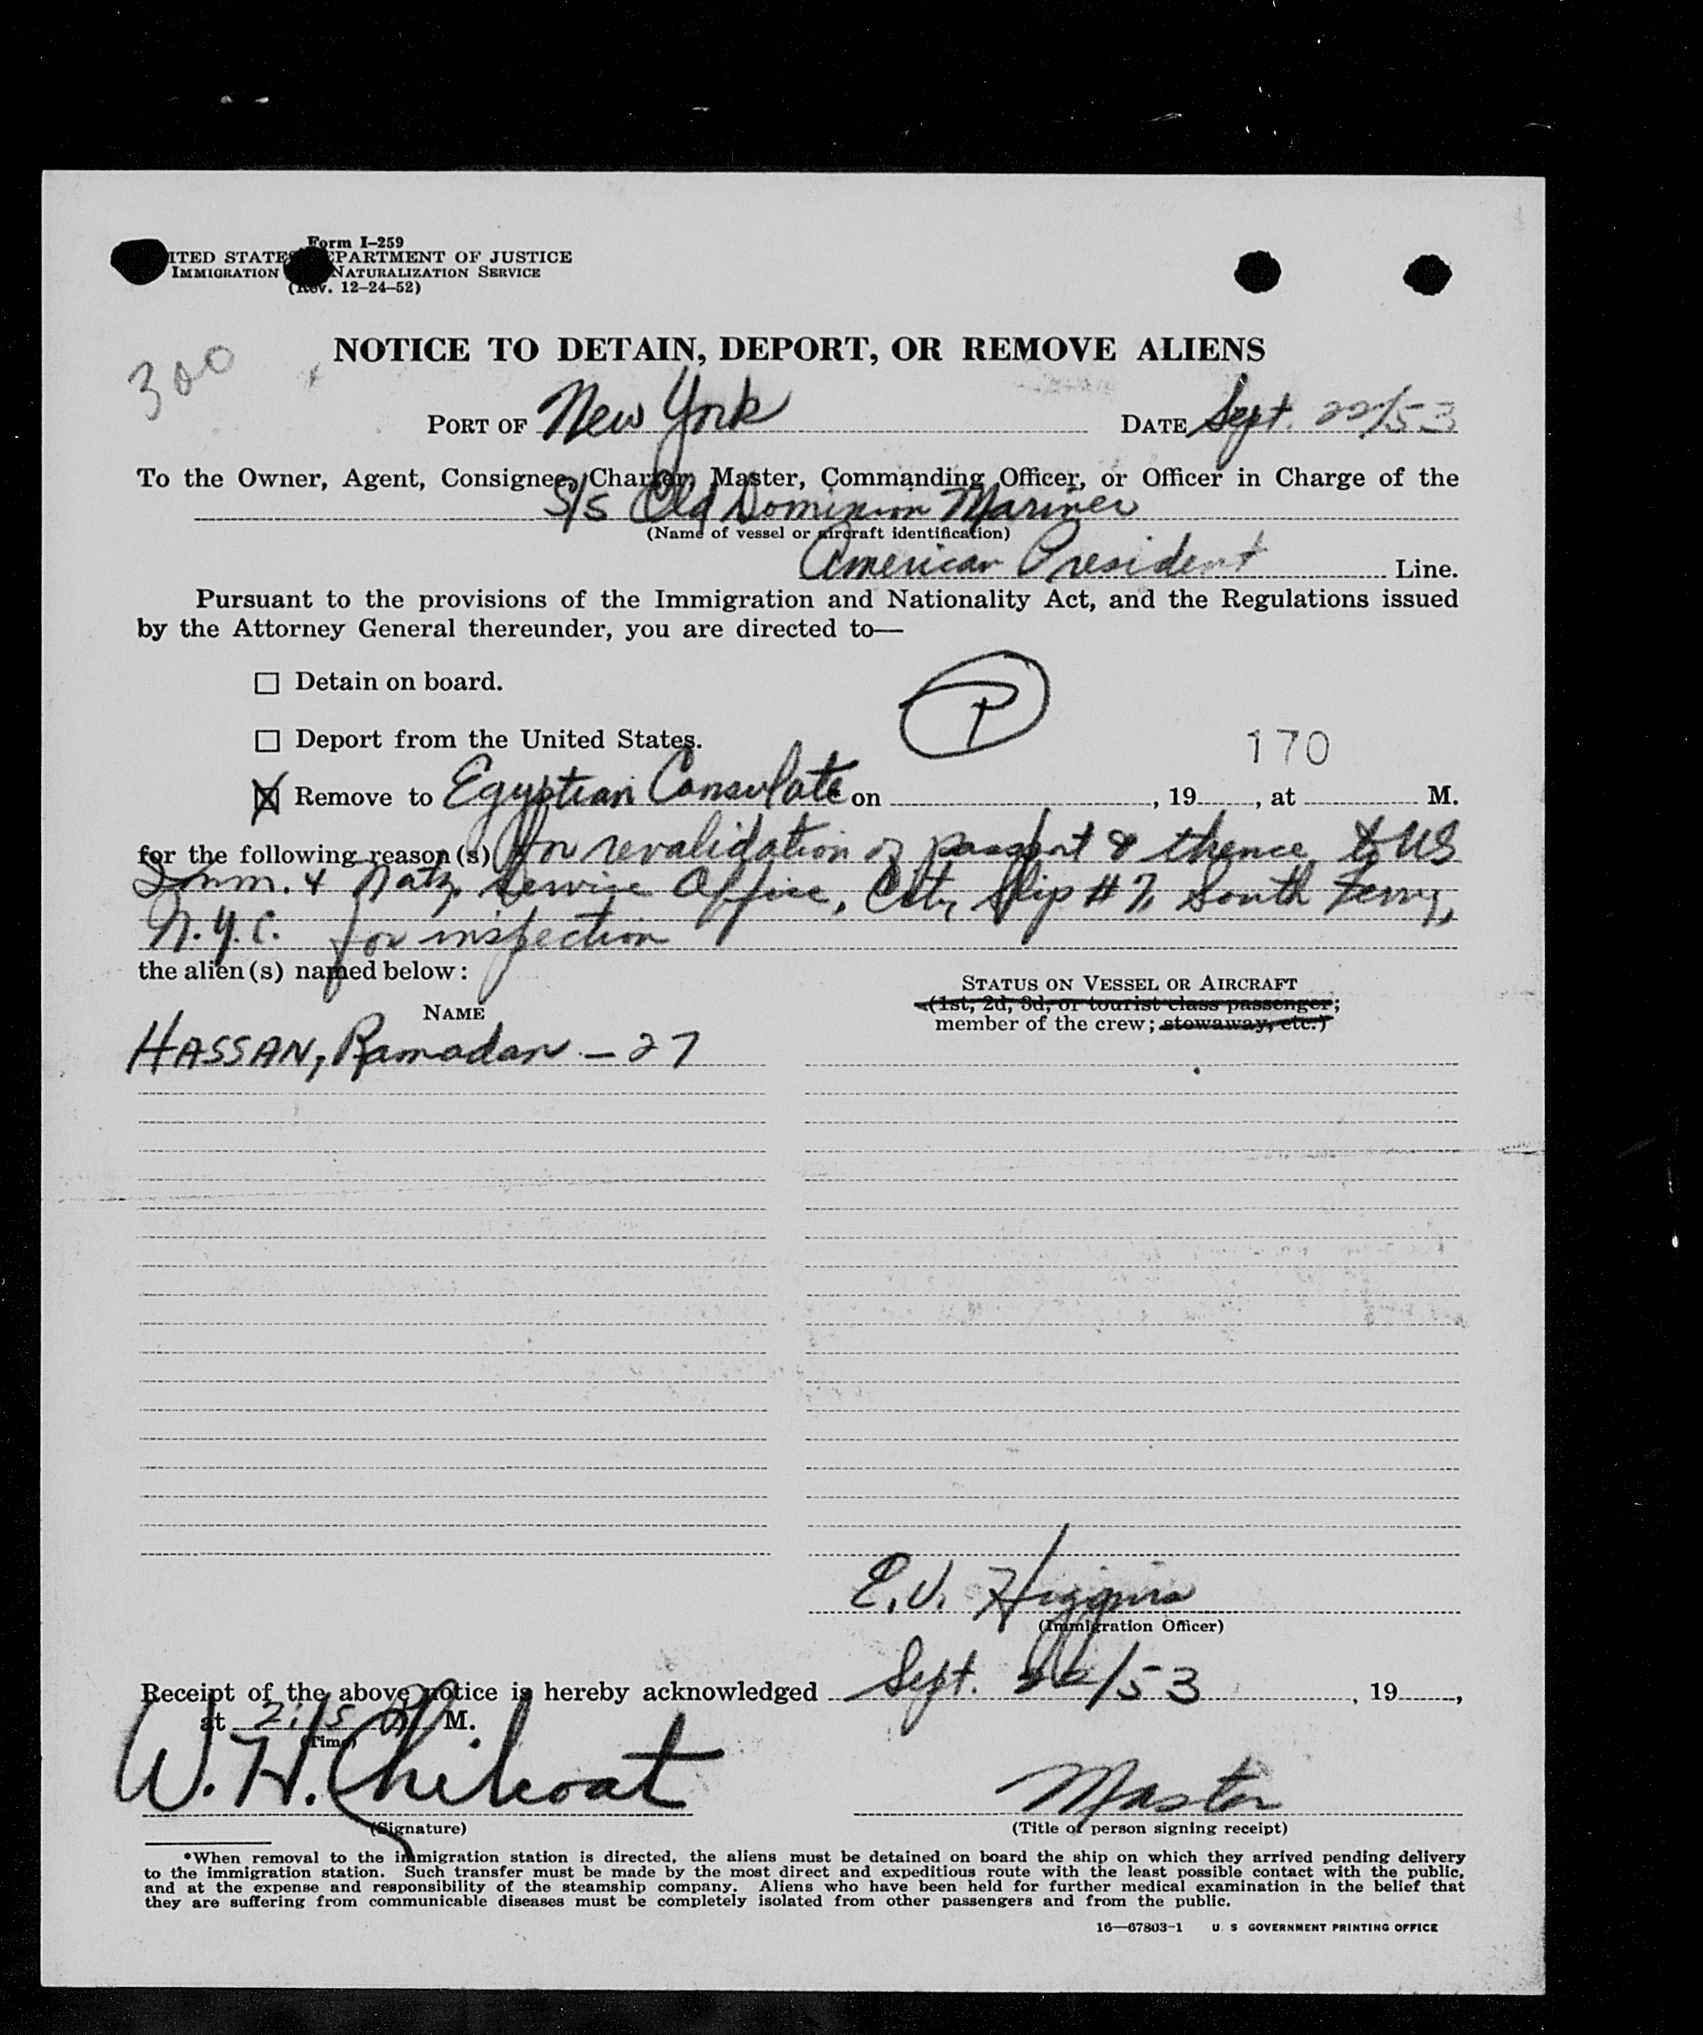 Form I-259
ITED STATES EPARTMENT OF JUSTICE
IMMIGRATION NATURALIZATION SERVICE
(Rev. 12-24-52)
300
NOTICE TO DETAIN, DEPORT, OR REMOVE ALIENS
PORT OF New York DATE Sept. 22/53
To the Owner, Agent, Consignee, Charter, Master, Commanding Officer, or Officer in Charge of the
S/S Old Dominion Mariner
(Name of vessel or aircraft identification)
American President Line.
Pursuant to the provisions of the Immigration and Nationality Act, and the Regulations issued
by the Attorney General thereunder, you are directed to—
☐ Detain on board.
P
☐ Deport from the United States.
170
☒ Remove to Egyptian Consulate on , 19 , at M.
for the following reason(s) for revalidation of passport & thence to US
Imm. & Natz. Service Office, City Slip #7, South Ferry,
N.Y.C. for inspection
the alien(s) named below:
NAME
STATUS ON VESSEL OR AIRCRAFT
(1st, 2d, 3d, or tourist class passenger;
member of the crew; stowaway, etc.)
HASSAN, Ramadan - 27
E.V. Higgins
(Immigration Officer)
Receipt of the above notice is hereby acknowledged Sept. 22/53 , 19 ,
at 2:15 P M.
(Time)
W. H. Chilcoat
(Signature)
Master
(Title of person signing receipt)
*When removal to the immigration station is directed, the aliens must be detained on board the ship on which they arrived pending delivery
to the immigration station. Such transfer must be made by the most direct and expeditious route with the least possible contact with the public,
and at the expense and responsibility of the steamship company. Aliens who have been held for further medical examination in the belief that
they are suffering from communicable diseases must be completely isolated from other passengers and from the public.
16—67803-1 U. S GOVERNMENT PRINTING OFFICE